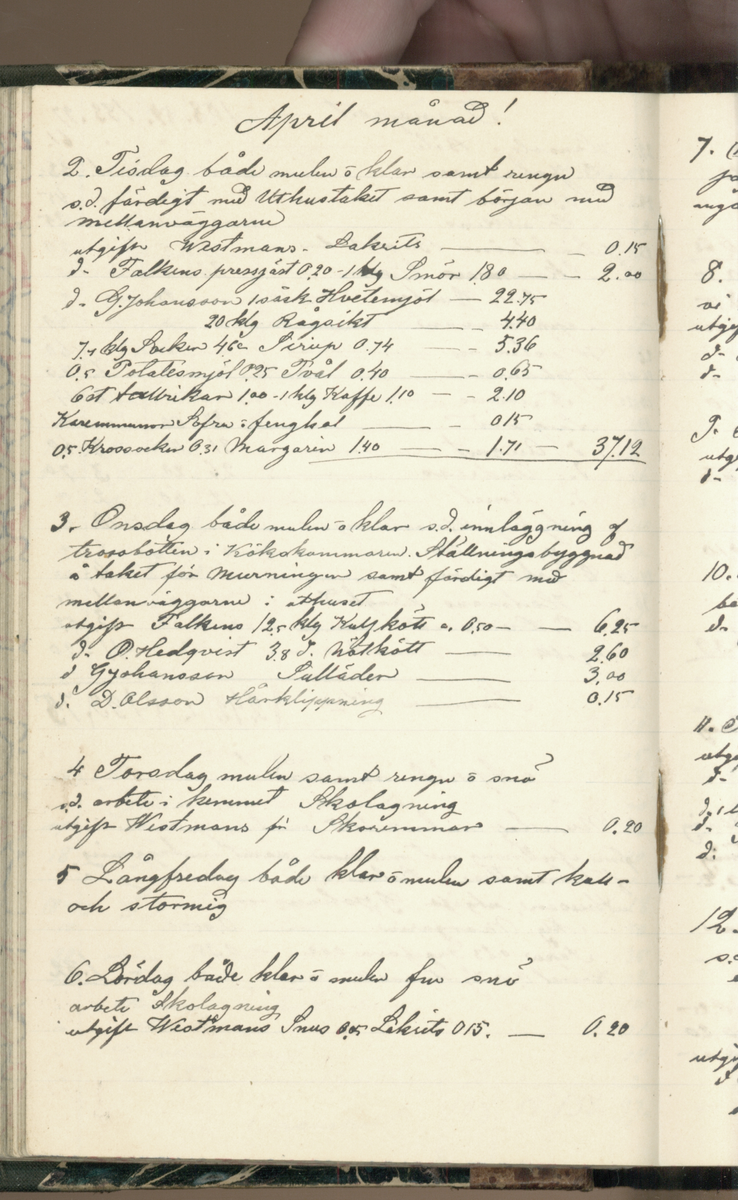 April månad!
2. Tisdag både mulen o klar samt rengn
s.d. färdigt med Uthustaket samt början med
mellanväggarne
utgift Westmans - Lakrits — - 0.15
d- Falkens pressjäst 0.20 - 1 klg Smör 1.80 — - 2.00
d- G. Johansson 1 säck Hvetemjöl — 22.75
20 klg Rågsikt — - 4.40
7.1 klg Socker 4.62 Sirup 0.74 — - 5.36
0.5 Potatesmjöl 0.25 Tvål 0.40 — - 0.65
6 st 1.00 - 1 klg Kaffe 1.10 - - 2.10
Karemummor — - 0.15
0.5 Krossocker 0.31 Margarin 1.40 — - 1.71 — 37.12
3. Onsdag både mulen o klar s.d. innläggning af
trossbötten i Kökskammaren. Ställningsbyggnad
å taket för Murningen samt färdigt med
mellanväggarne i uthuset
utgift Falkens 12.5 klg Kalfkött a. 0.50 — - 6.25
d- O. Hedqvist 3.8 d. Nötkött — 2.60
d G Johansson Sulläder — 3.00
d. D. Olsson Hårklippning — 0.15
4 Torsdag mulen samt rengn o snö
s.d. arbete i hemmet Skolagning
utgift Westmans pr Skoremmar — 0.20
5 Långfredag både klar o mulen samt kall -
och stormig
6. Lördag både klar o mulen snö
arbete Skolagning
utgift Westmans Snus 0.05 Lakrits 0.15. — 0.20
7.
8.
vi
utgift
d-
d-
9.
utgi
d-
10.
be
d-
11.
utg
d-
d.
d-
d.
12.
s.d
utgi
d